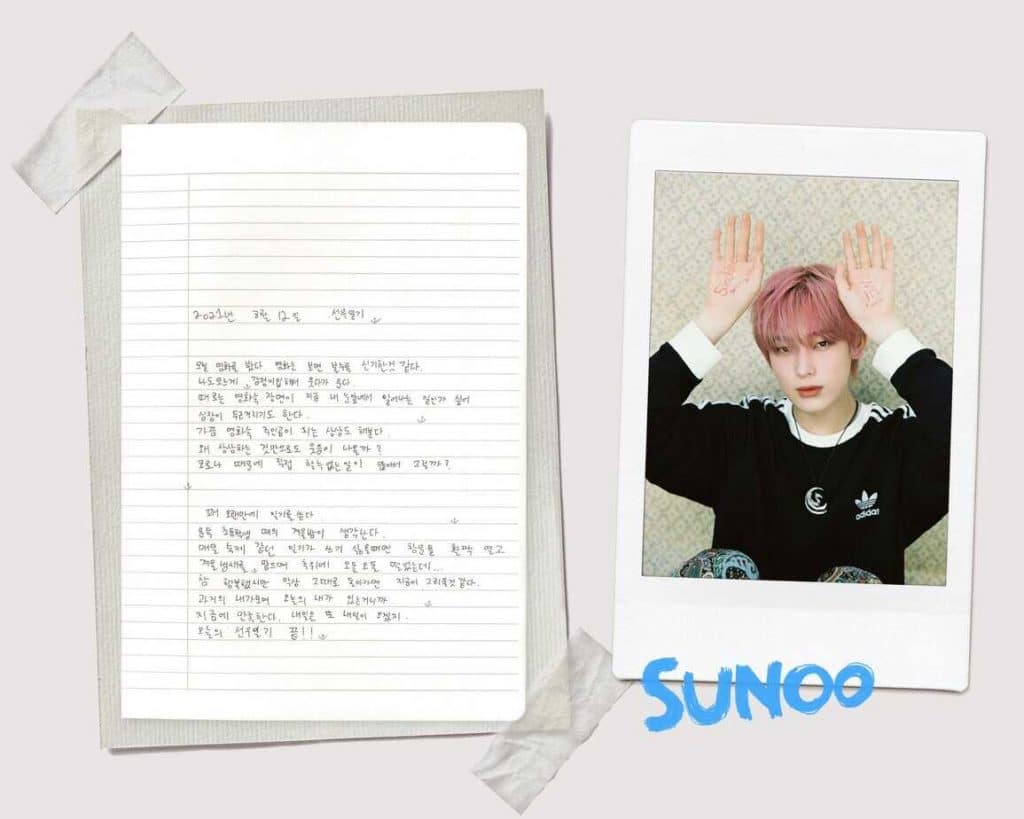 2021년 3월 12일 선우일기
오늘 영화를 봤다 영화는 보면 볼수록 신기한것 같다.
나도모르게 감정이입해서 웃다가 운다.
때로는 영화속 장면이 지금 내 눈앞에서 일어나는 일인가 싶어
심장이 두근거리기도 한다.
가끔 영화속 주인공이 되는 상상도 해본다.
왜 상상하는 것만으로도 웃음이 나올까?
코로나 때문에 직접 할수없는일이 많아서 그럴까?
오랜만에 일기를 쓴다
문득 초등학생 때의 겨울밤이 생각난다.
매일 숙제 같던 일기가 쓰기 싫을때면 창문을 활짝 열고
겨울냄새를 맡으며 추위에 오들오들 떨었는데...
참 행복했지만 막상 그때로 돌아가면 지금이 그리울것 같다.
과거의 내가모여 오늘의 내가 있는거니까
지금에 만족한다. 내일은 또 내일이 오겠지.
오늘의 선우일기 끝!!
adidas
SUNOO